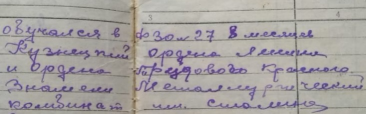 обучался в фзо№27 8 месяцев
Кузнецкий ордена Ленина
и ордена Трудового Красного
Знамени Металлургический
комбинат им. Сталина